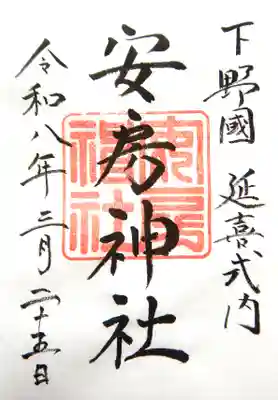 下野國 延喜式内
安房神社
令和八年三月二十五日